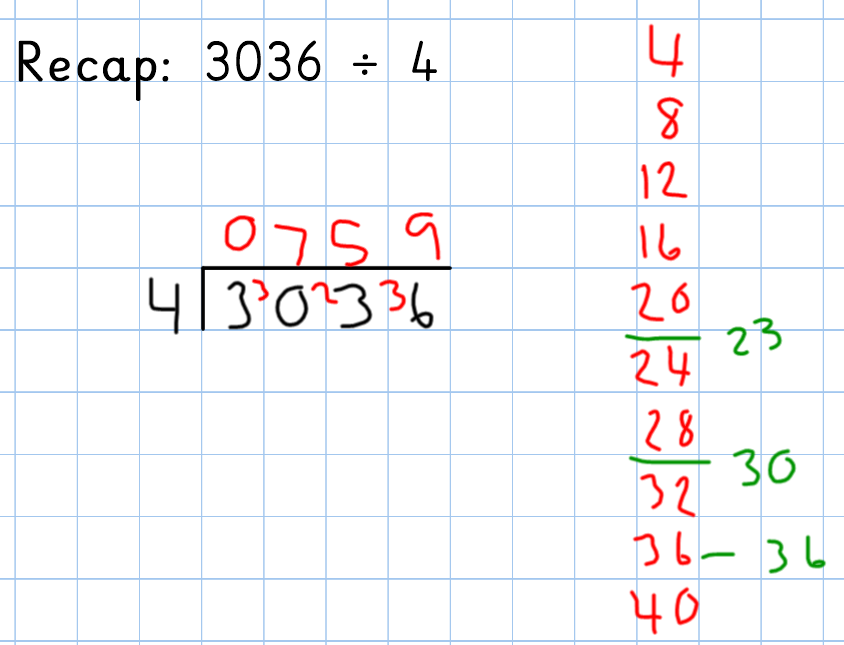 Recap: 3036 ÷ 4
0 7 5 9
4 3 3 0 2 3 3 6
4
8
12
16
20
23
24
28
30
32
36 – 36
40